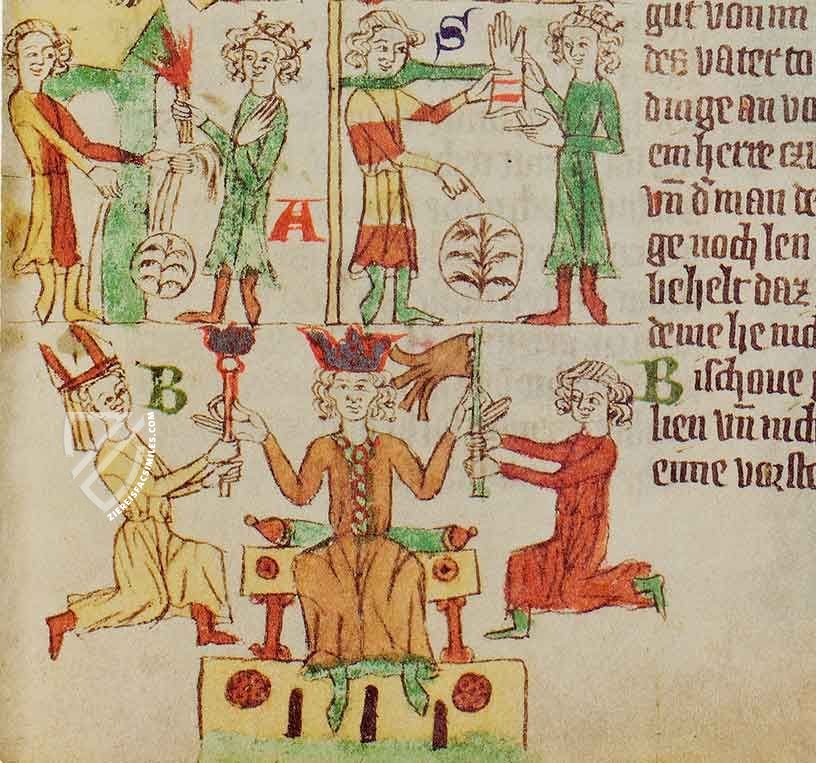 S
A
B
B
gut von im
des vater to
dinge an vo
em herre czu
vn̄ d̓ man de
ge noch len
behelt daz
deme he nich
ischoue
lien vn̄ nich
eime vorste
ZIEREISFACSIMILES.COM